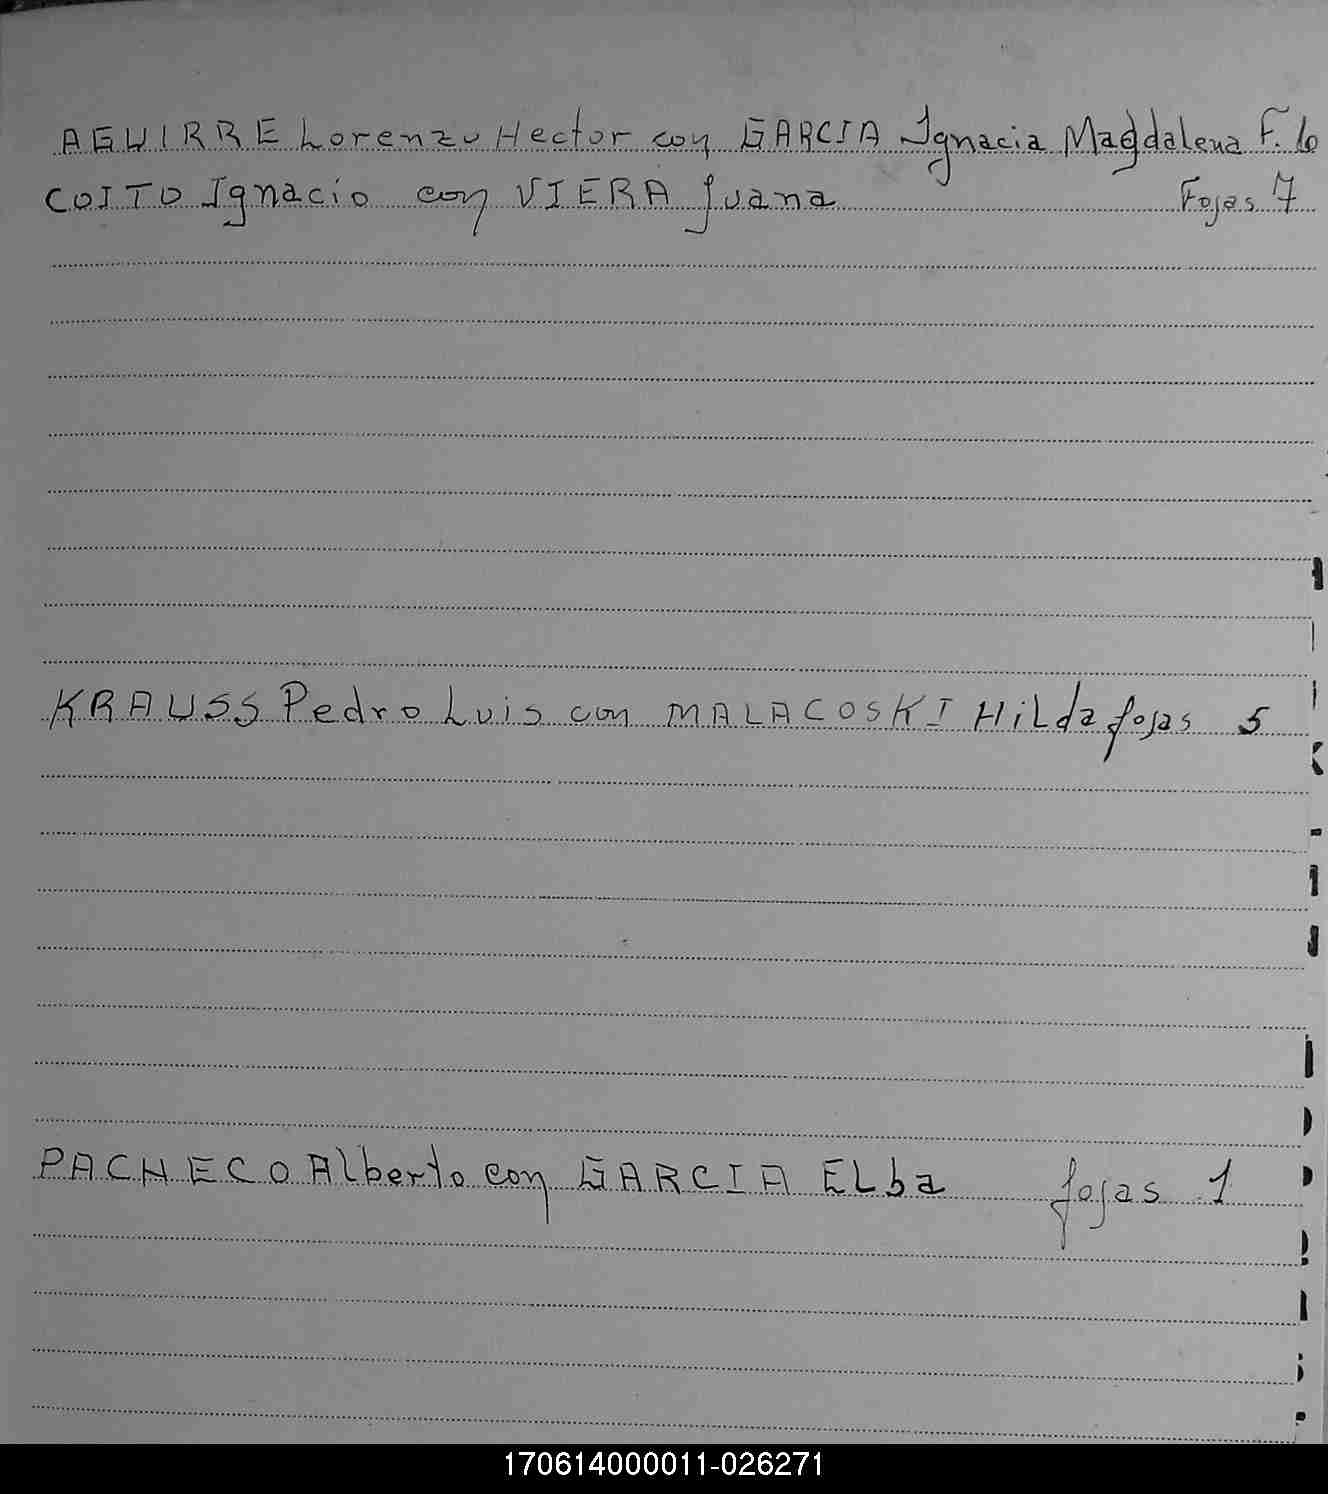 AGUIRRE Lorenzo Hector con GARCIA Ignacia Magdalena F. 6
COITO Ignacio con VIERA Juana Fojas 7
KRAUSS Pedro Luis con MALACOSKI Hilda fojas 5
PACHECO Alberto con GARCIA Elba fojas 1
170614000011-026271